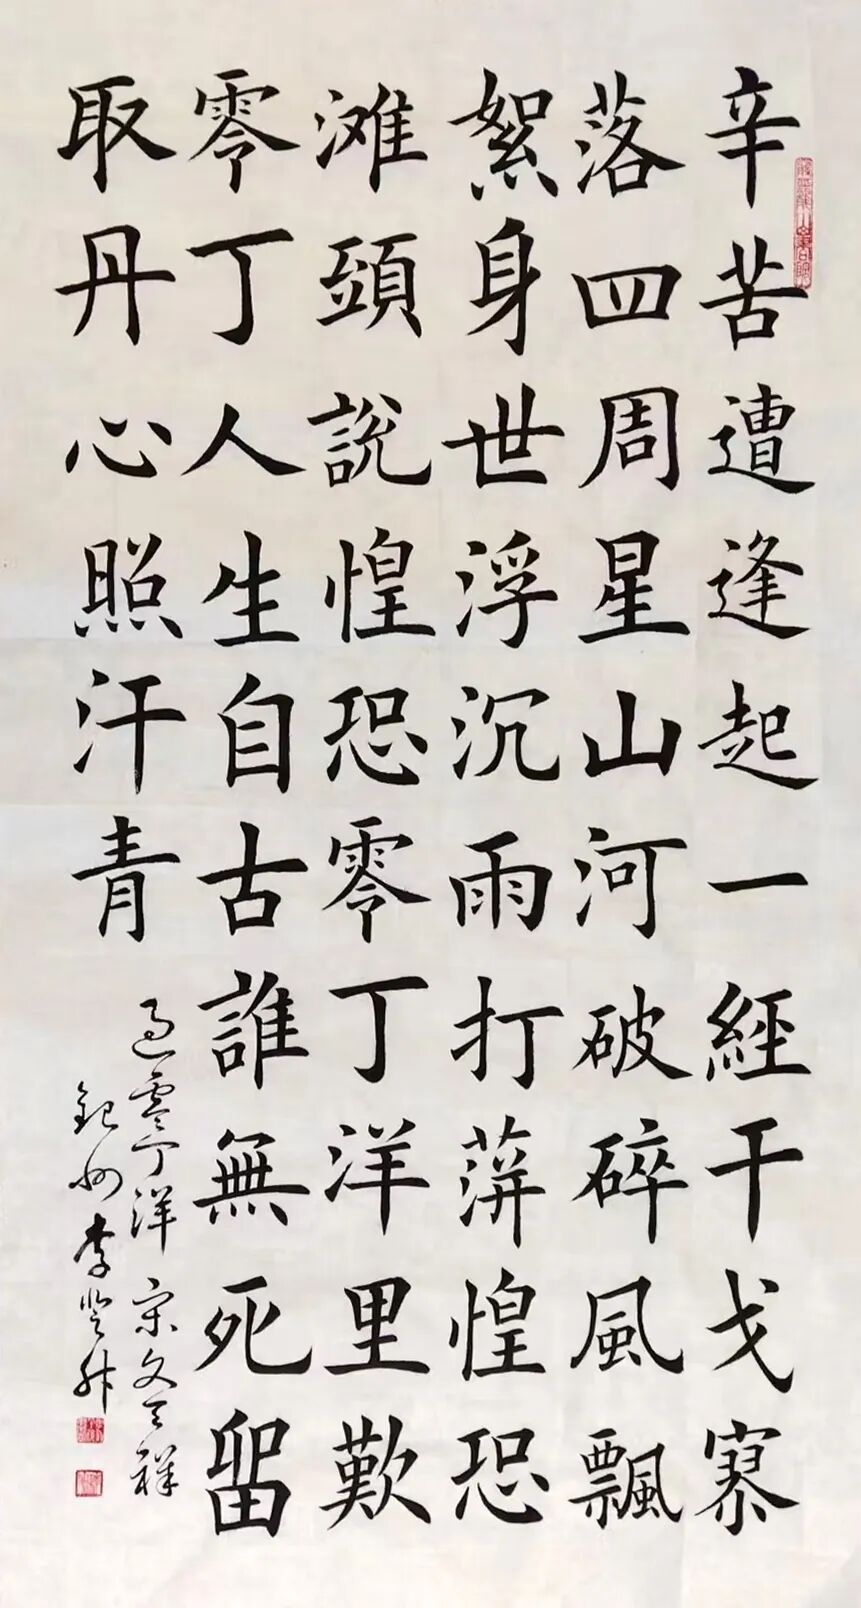 辛苦遭逢起一經干戈寥
落四周星山河破碎風飄
絮身世浮沉雨打蓱惶恐
滩頭説惶恐零丁洋里歎
零丁人生自古誰無死留
取丹心照汗青
過零丁洋 宋文天祥
李登